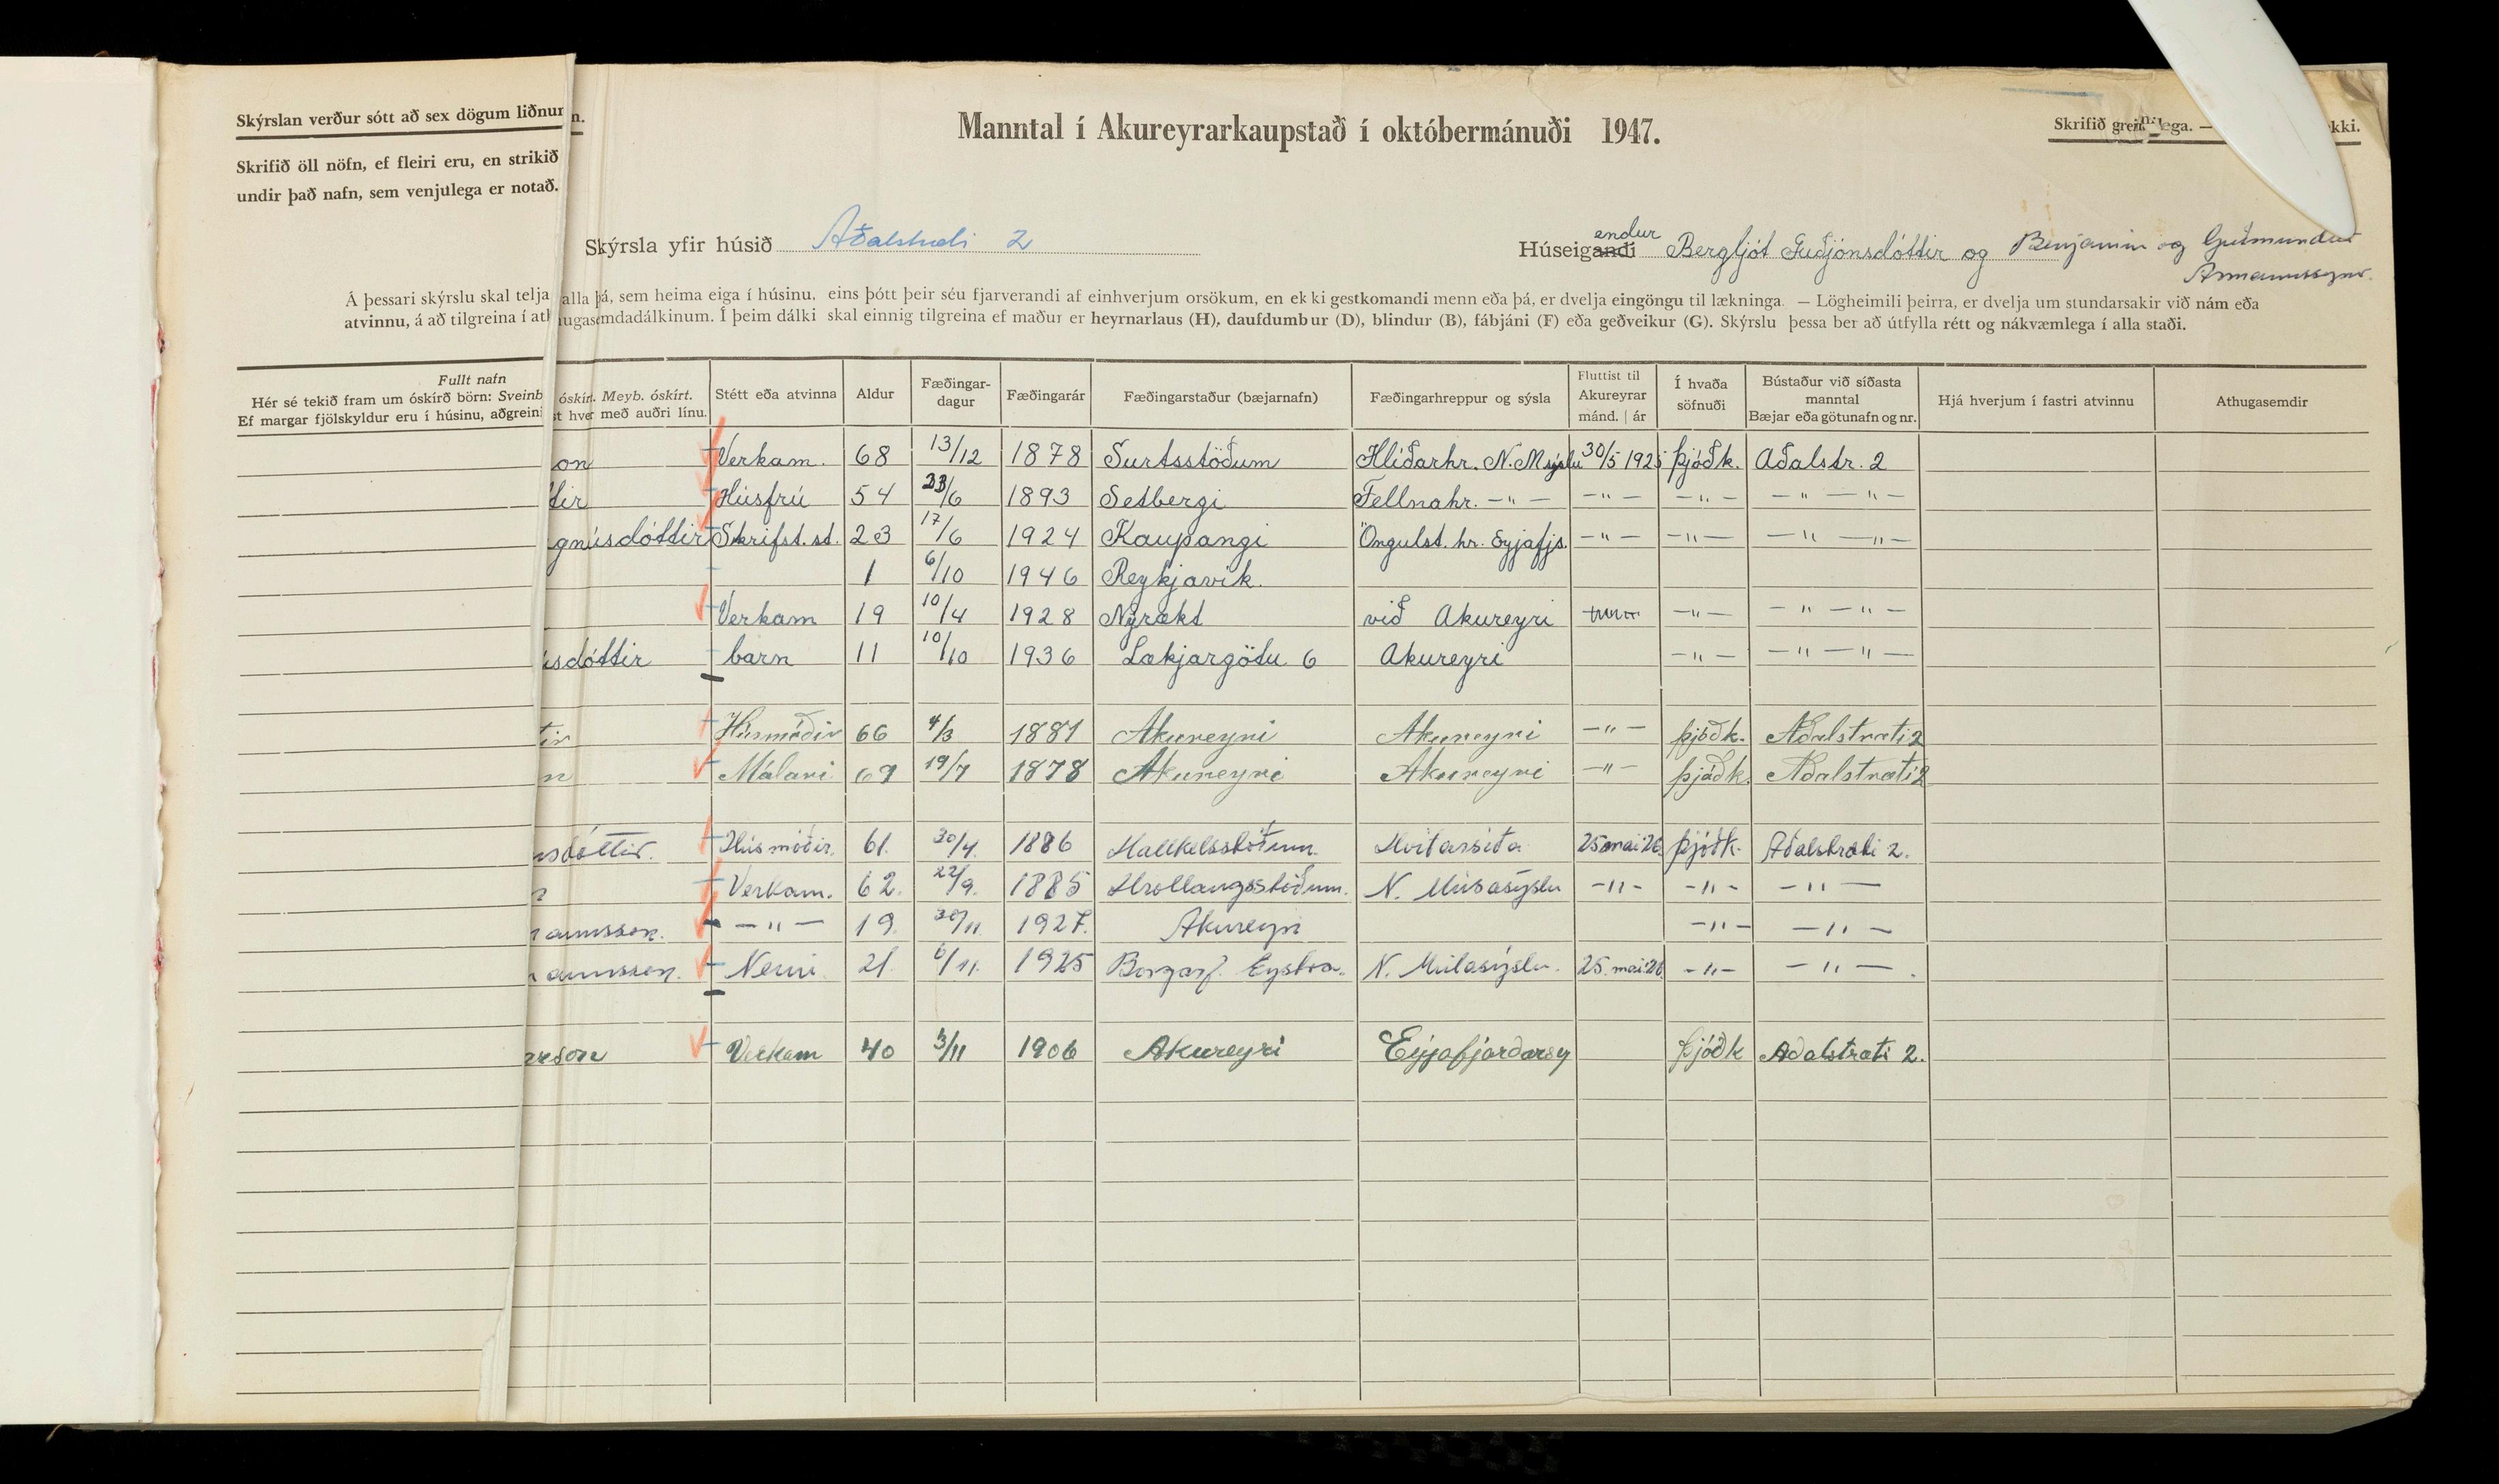 Skýrslan verður sótt að sex dögum liðnum.
Manntal í Akureyrarkaupstað í októbermánuði 1947.
Skrifið öll nöfn, ef fleiri eru, en strikið
undir það nafn, sem venjulega er notað.
Skýrsla yfir húsið Aðalstræti 2
endur
Húseigandi Bergljót Guðjónsdóttir og Benjamín og Guðmundur
Ármannssynir.
Á þessari skýrslu skal telja alla þá, sem heima eiga í húsinu, eins þótt þeir séu fjarverandi af einhverjum orsökum, en ekki gestkomandi menn eða þá, er dvelja eingöngu til lækninga. — Lögheimili þeirra, er dvelja um stundarsakir við nám eða
atvinnu, á að tilgreina í athugasemdadálkinum. Í þeim dálki skal einnig tilgreina ef maður er heyrnarlaus (H), daufdumbur (D), blindur (B), fábjáni (F) eða geðveikur (G). Skýrslu þessa ber að útfylla rétt og nákvæmlega í alla staði.
Fullt nafn
Hér sé tekið fram um óskírð börn: Sveinb óskírt. Meyb. óskírt.
Ef margar fjölskyldur eru í húsinu, aðgreinist hver með auðri línu.
Stétt eða atvinna
Aldur
Fæðingar-
dagur
Fæðingarár
Fæðingarstaður (bæjarnafn)
Fæðingarhreppur og sýsla
Fluttist til
Akureyrar
mánd. | ár
Í hvaða
söfnuði
Bústaður við síðasta
manntal
Bæjar eða götunafn og nr.
Hjá hverjum í fastri atvinnu
Athugasemdir
on Verkam. 68 13/12 1878 Surtsstöðum Hlíðarhr. N.Msýslu 30/5 1925 þjóðk. Aðalstr. 2
tir Húsfrú 54 23/6 1893 Setbergi Fellnahr. -"- -"- -"- -"- -"-
gnúsdóttir Skrifst.st. 23 17/6 1924 Kaupangi Öngulst.hr. Eyjafjs. -"- -"- -"- -"-
1 6/10 1946 Reykjavík.
Verkam 19 10/4 1928 Nýrækt við Akureyri -"- -"- -"-
usdóttir barn 11 10/10 1936 Lækjargötu 6 Akureyri -"- -"- -"-
tir Húsmóðir 66 4/3 1881 Akureyri Akureyri -"- þjóðk. Aðalstræti 2
n Málari 69 19/7 1878 Akureyri Akureyri -"- þjóðk. Aðalstræti 2
nsdóttir. Húsmóðir. 61. 30/4. 1886 Hallkelsstöðum. Hvítársíða 25 maí '26. þjóðk. Aðalstræti 2.
n Verkam. 62. 22/9. 1885 Hrollaugsstöðum. N. Múlasýslu -"- -"- -"-
mannsson. -"- 19. 30/11. 1927. Akureyri -"- -"-
mannsson. Nemi. 21. 6/11. 1925 Borgarf. Eystra. N. Múlasýslu. 25. maí '26. -"- -"-
arson Verkam 40 3/11 1906 Akureyri Eyjafjarðarsy þjóðk Aðalstræti 2.